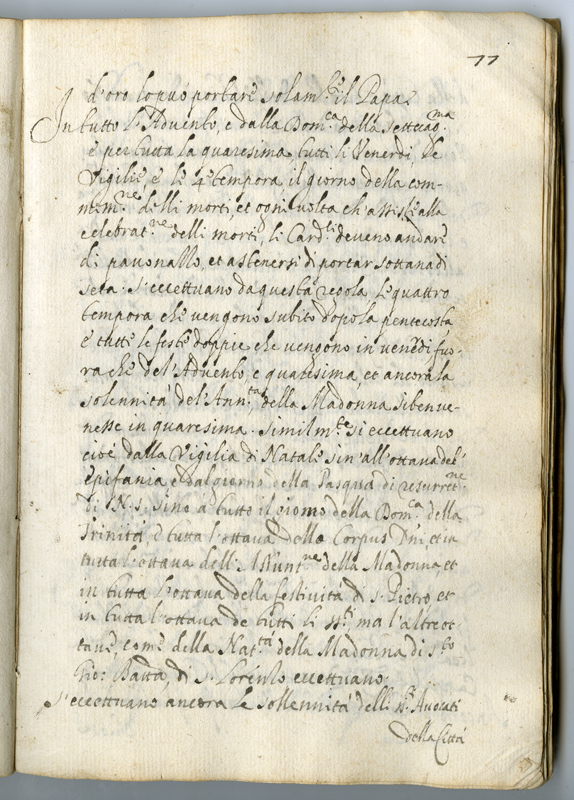 77
d'oro lo può portare solam.te il Papa.
In tutto l'Advento, e dalla Dom.ca della settuag.ma
e per tutta la quaresima tutti li Venerdi, le
Vigilie, e le 4 tempora il giorno della com-
mem.ne delli morti, et ogni volta ch'assiste alla
celebrat.ne delli morti, li Card.li deveno andare
di pavonallo, et astenersi di portar sottana di
seta. s'eccettuano da questa regola le quattro
tempora che vengono subito dopo la pentecosta
e tutte le feste doppie che vengono in venerdi fuo-
ra che del'Advento e quaresima, et ancora la
solennità del'Ann.ta della Madonna sibenve-
nesse in quaresima. Similm.te si eccettuano
cioè dalla Vigilia di Natale sin'all'ottava del'
Epifania e dal giorno della Pasqua di resurret.ne
di N. S. sino a tutto il giorno della Dom.ca della
Trinità, e tutta l'ottava dello Corpus Dni et in
tutta l'ottava dell'Assunt.ne della Madonna, et
in tutta l'ottava della festività di S. Pietro, et
in tutta l'ottava de tutti li S.ti ma l'altre ot-
tave, come della Nat.tà della Madonna di S.to
Gio: Batta, di S. Lorenzo eccettuano.
S'eccettuano ancora le sollennità delli S.ti Avocati
della Città